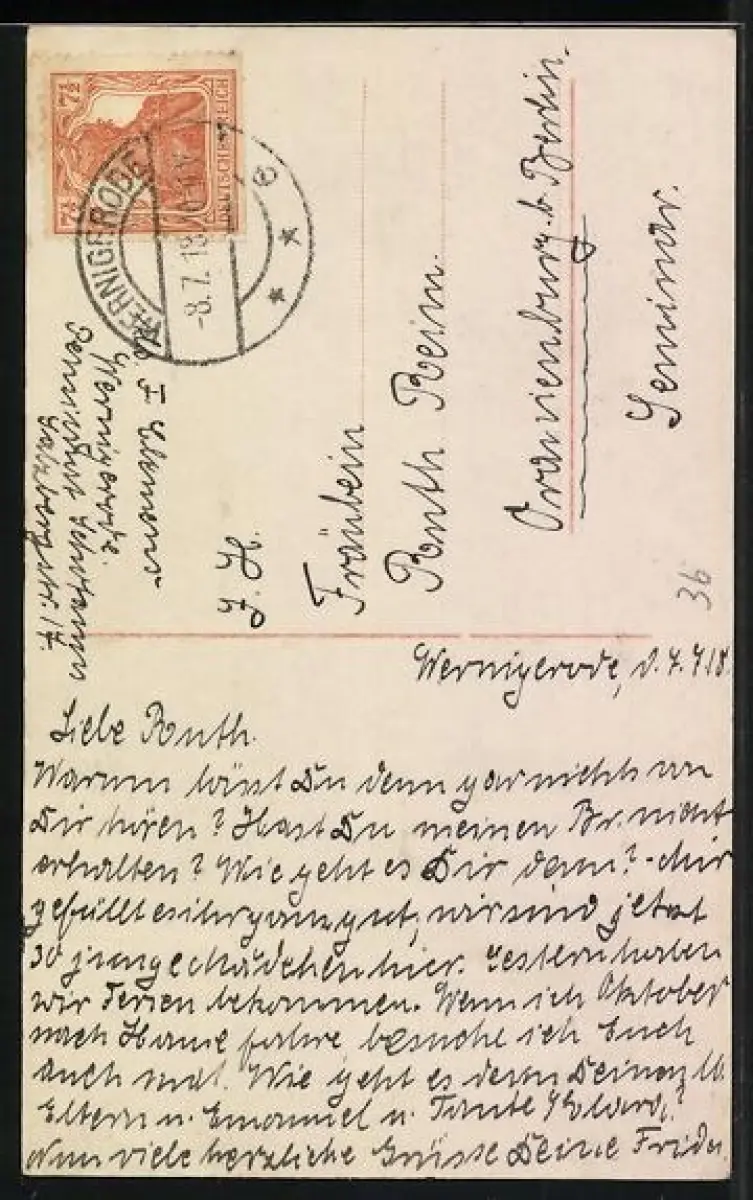 7½ DEUTSCHES REICH 7½
WERNIGERODE
-8.7.18
Wernigerode
J. H.
Fräulein
Ruth Reim.
Oranienburg b. Berlin.
Seminar.
36
Wernigerode, d. 7.7.18.
Liebe Ruth.
Warum läßt Du denn gar nichts von
Dir hören? Hast Du meinen Br. nicht
erhalten? Wie geht es Dir denn? Mir
gefällt es hier ganz gut, wir sind jetzt
30 junge Mädchen hier. Gestern haben
wir Ferien bekommen. Wenn ich Oktober
nach Hause fahre besuche ich Euch
auch mal. Wie geht es denn Deinen lb.
Eltern u. Emanuel u. Tante
Nun viele herzliche Grüsse Deine Frida.